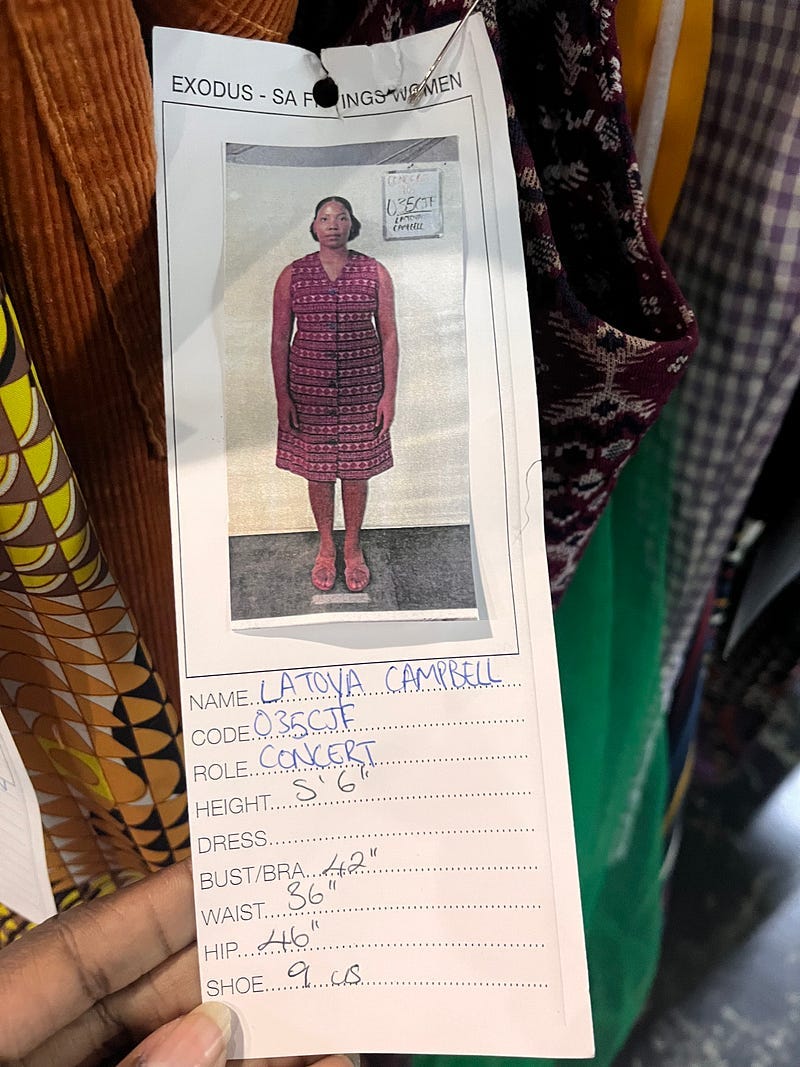 EXODUS - SA FITTINGS WOMEN
CONCERT
035CJF
LATOYA
CAMPBELL
NAME..LATOYA CAMPBELL
CODE..035CJF
ROLE..CONCERT
HEIGHT....5'6"
DRESS
BUST/BRA...42"
WAIST...36"
HIP...46"
SHOE...9 US